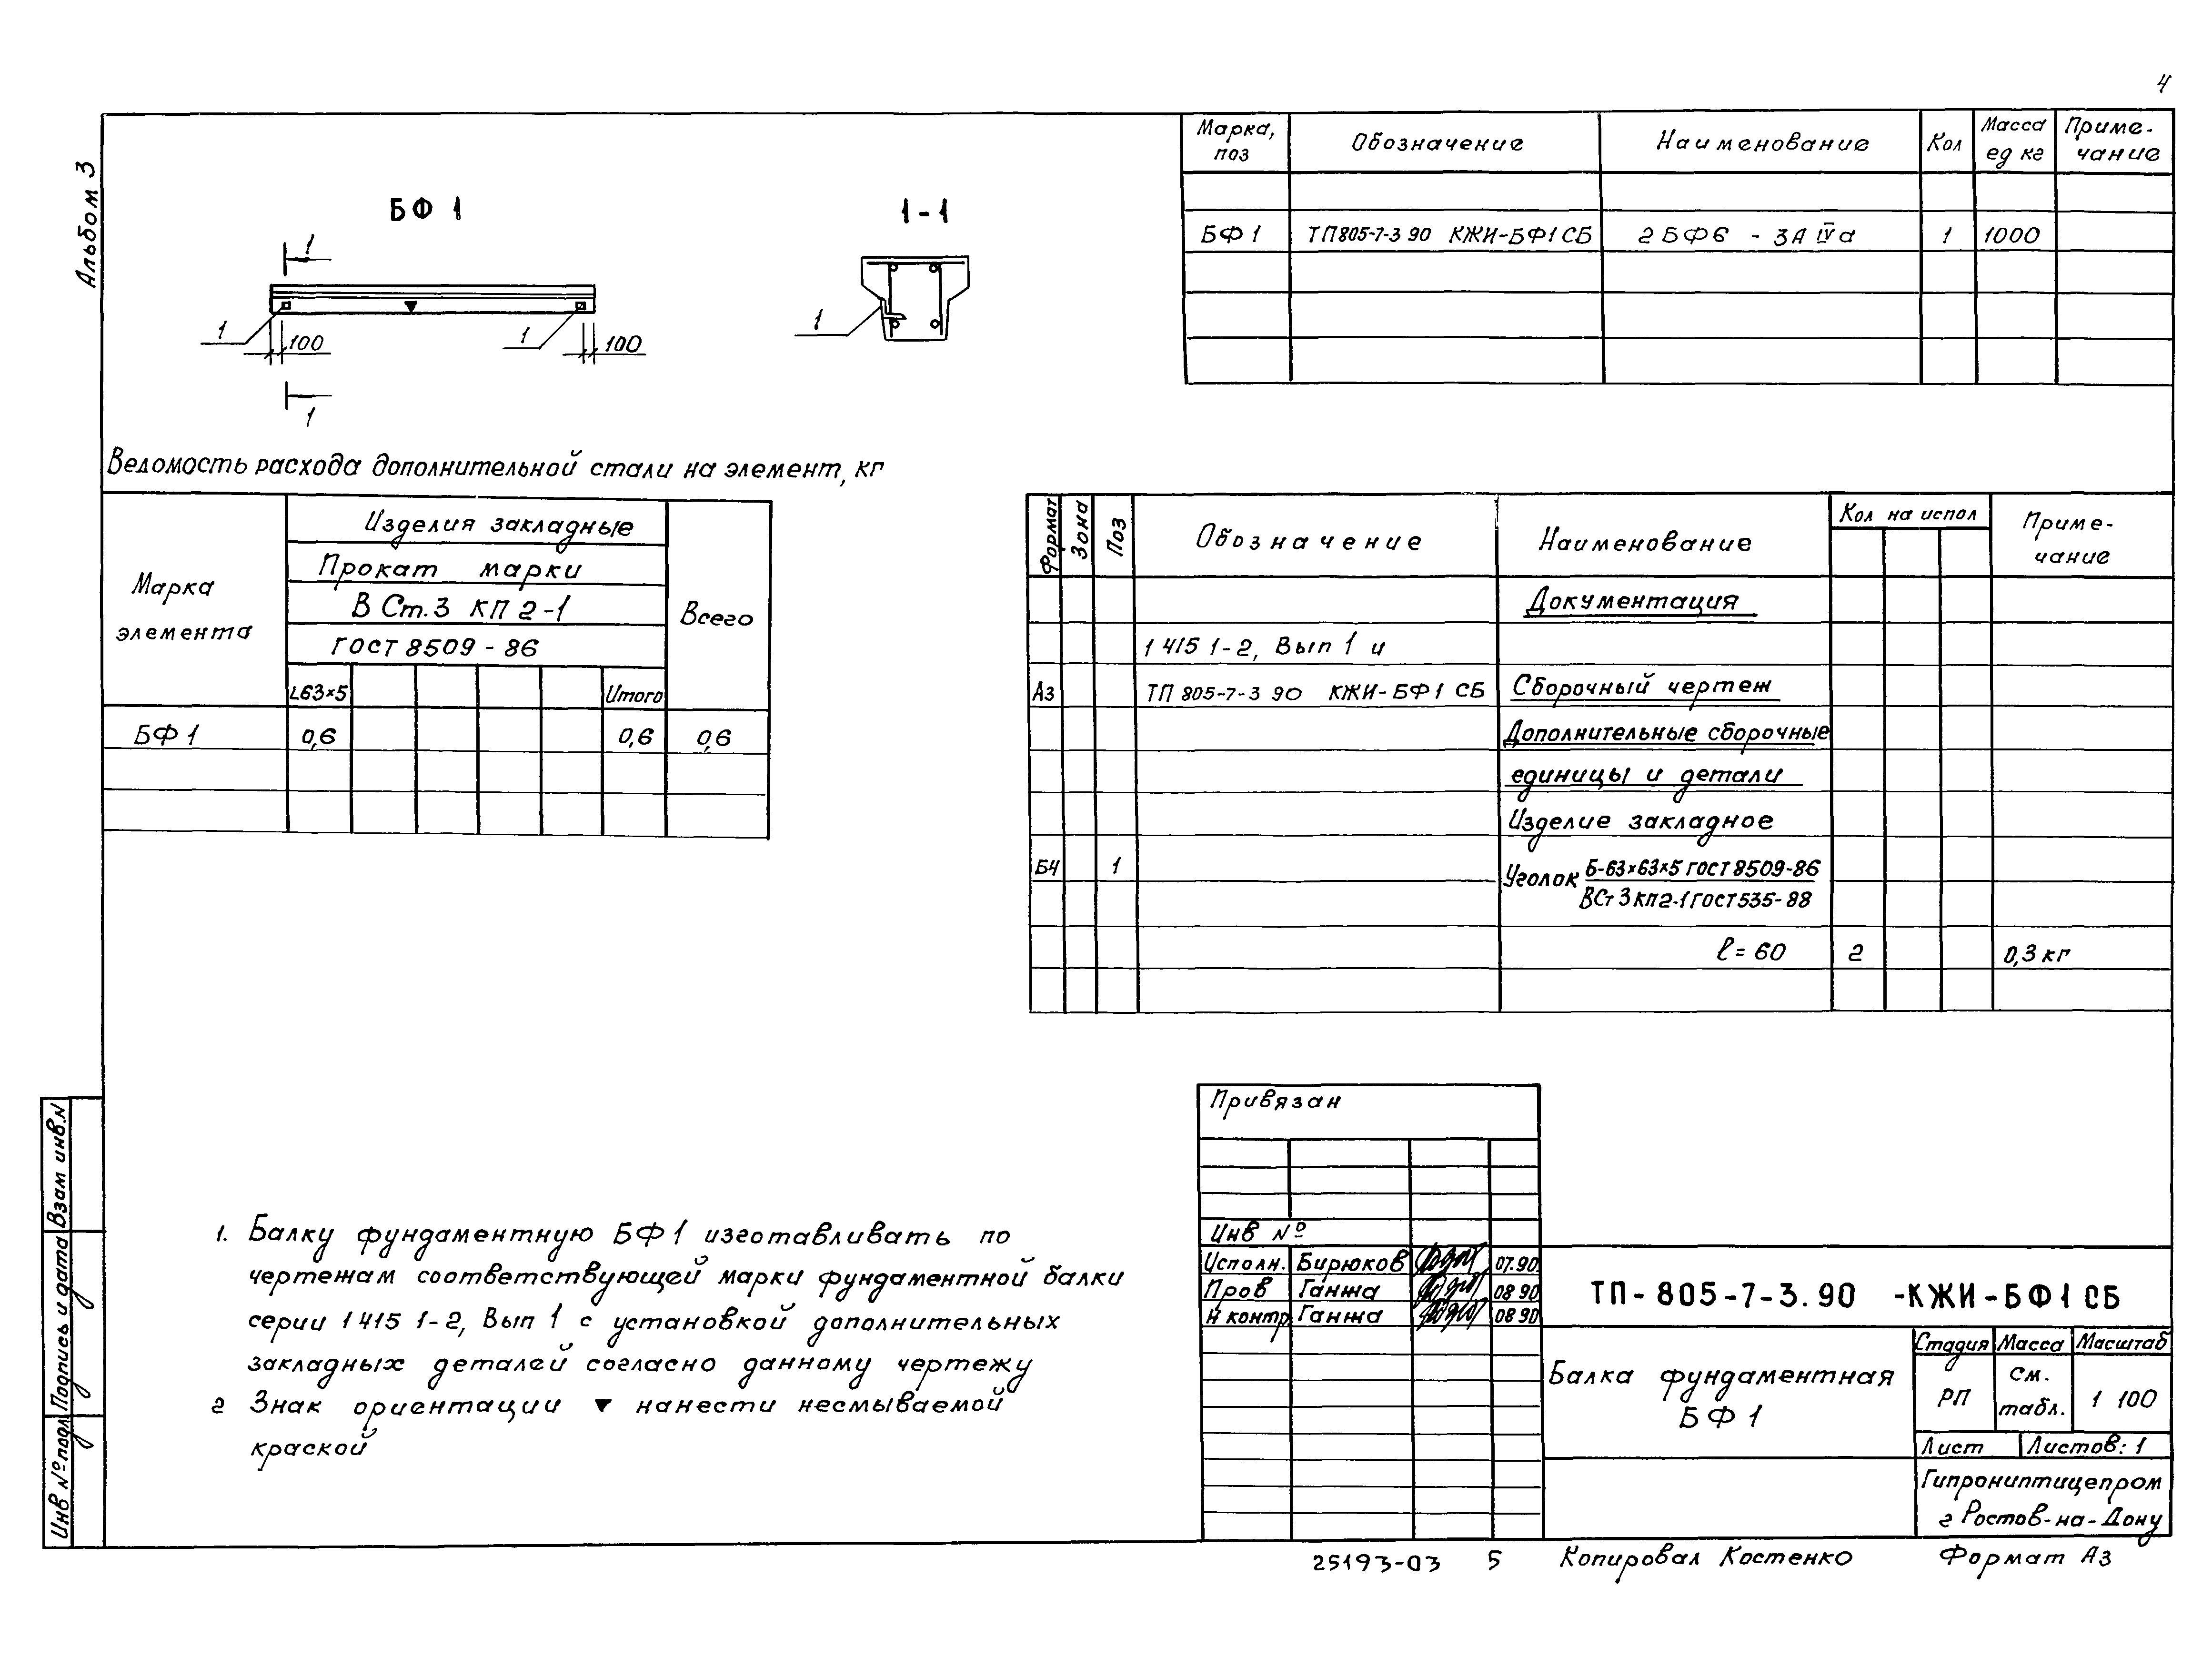 4
Альбом 3
БФ 1
1-1
1
1
1
100
100
1
1
Марка, поз
Обозначение
Наименование
Кол
Масса ед кг
Приме-
чание
БФ 1 ТП 805-7-3 90 КЖИ-БФ1 СБ 2БФ6 - 3А IVа 1 1000
Ведомость расхода дополнительной стали на элемент, кг
Марка
элемента
Изделия закладные
Прокат марки
В Ст.3 КП 2-1
ГОСТ 8509 - 86
L63×5 Итого
Всего
БФ 1 0,6 0,6 0,6
Формат Зона Поз Обозначение Наименование Кол на испол Приме-
чание
Документация
1 415 1-2, Вып 1 и
А3 ТП 805-7-3 90 КЖИ-БФ1 СБ Сборочный чертеж
Дополнительные сборочные
единицы и детали
Изделие закладное
Б4 1 Уголок Б-63×63×5 ГОСТ 8509-86
ВСт 3 кп2-1 ГОСТ 535-88
ℓ = 60 2 0,3 кг
1. Балку фундаментную БФ1 изготавливать по
чертежам соответствующей марки фундаментной балки
серии 1 415 1-2, Вып 1 с установкой дополнительных
закладных деталей согласно данному чертежу
2 Знак ориентации ▼ нанести несмываемой
краской
Взам инв.N
Подпись и дата
Инв № подл
Привязан
Инв №
Исполн. Бирюков 07.90
Пров Ганжа 08 90
Н контр Ганжа 08 90
ТП - 805-7-3.90 -КЖИ-БФ1 СБ
Балка фундаментная
БФ 1
Стадия Масса Масштаб
РП см.
табл. 1 100
Лист Листов: 1
Гипрониптицепром
г Ростов-на-Дону
25193-03 5 Копировал Костенко Формат А3